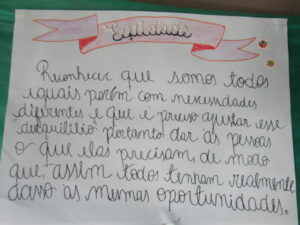 Equidade
Reconhecer que somos todos
iguais porém com necessidades
diferentes e que é preciso ajustar esse
desquilibrio portanto dar as pessoas
o que elas precisam, de modo
que, assim todos tenham realmente
as mesmas oportunidades.